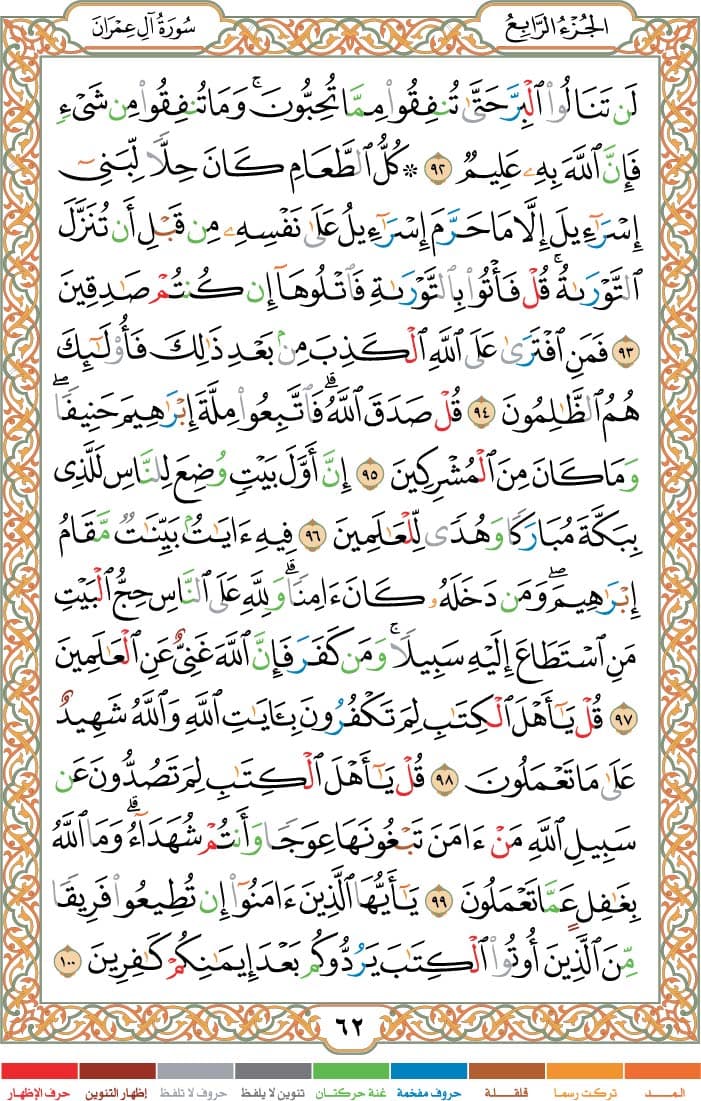 الجُزْءُ الرَّابِعُ
سُورَةُ آلِ عِمْرَانَ
لَن تَنَالُوا۟ ٱلْبِرَّ حَتَّىٰ تُنفِقُوا۟ مِمَّا تُحِبُّونَ ۚ وَمَا تُنفِقُوا۟ مِن شَىْءٍ
فَإِنَّ ٱللَّهَ بِهِۦ عَلِيمٌ ٩٢ ۞ كُلُّ ٱلطَّعَامِ كَانَ حِلًّا لِّبَنِىٓ
إِسْرَٰٓءِيلَ إِلَّا مَا حَرَّمَ إِسْرَٰٓءِيلُ عَلَىٰ نَفْسِهِۦ مِن قَبْلِ أَن تُنَزَّلَ
ٱلتَّوْرَىٰةُ ۗ قُلْ فَأْتُوا۟ بِٱلتَّوْرَىٰةِ فَٱتْلُوهَآ إِن كُنتُمْ صَٰدِقِينَ
٩٣ فَمَنِ ٱفْتَرَىٰ عَلَى ٱللَّهِ ٱلْكَذِبَ مِنۢ بَعْدِ ذَٰلِكَ فَأُو۟لَٰٓئِكَ
هُمُ ٱلظَّٰلِمُونَ ٩٤ قُلْ صَدَقَ ٱللَّهُ ۗ فَٱتَّبِعُوا۟ مِلَّةَ إِبْرَٰهِيمَ حَنِيفًا ۖ
وَمَا كَانَ مِنَ ٱلْمُشْرِكِينَ ٩٥ إِنَّ أَوَّلَ بَيْتٍ وُضِعَ لِلنَّاسِ لَلَّذِى
بِبَكَّةَ مُبَارَكًا وَهُدًى لِّلْعَٰلَمِينَ ٩٦ فِيهِ ءَايَٰتٌۢ بَيِّنَٰتٌ مَّقَامُ
إِبْرَٰهِيمَ ۖ وَمَن دَخَلَهُۥ كَانَ ءَامِنًا ۗ وَلِلَّهِ عَلَى ٱلنَّاسِ حِجُّ ٱلْبَيْتِ
مَنِ ٱسْتَطَاعَ إِلَيْهِ سَبِيلًا ۚ وَمَن كَفَرَ فَإِنَّ ٱللَّهَ غَنِىٌّ عَنِ ٱلْعَٰلَمِينَ
٩٧ قُلْ يَٰٓأَهْلَ ٱلْكِتَٰبِ لِمَ تَكْفُرُونَ بِـَٔايَٰتِ ٱللَّهِ وَٱللَّهُ شَهِيدٌ
عَلَىٰ مَا تَعْمَلُونَ ٩٨ قُلْ يَٰٓأَهْلَ ٱلْكِتَٰبِ لِمَ تَصُدُّونَ عَن
سَبِيلِ ٱللَّهِ مَنْ ءَامَنَ تَبْغُونَهَا عِوَجًا وَأَنتُمْ شُهَدَآءُ ۗ وَمَا ٱللَّهُ
بِغَٰفِلٍ عَمَّا تَعْمَلُونَ ٩٩ يَٰٓأَيُّهَا ٱلَّذِينَ ءَامَنُوٓا۟ إِن تُطِيعُوا۟ فَرِيقًا
مِّنَ ٱلَّذِينَ أُوتُوا۟ ٱلْكِتَٰبَ يَرُدُّوكُم بَعْدَ إِيمَٰنِكُمْ كَٰفِرِينَ ١٠٠
٦٢
المـــد تركت رسما قلقلة حروف مفخمة غنة حركتان تنوين لا يلفظ حروف لا تلفظ إظهار التنوين حرف الإظهار